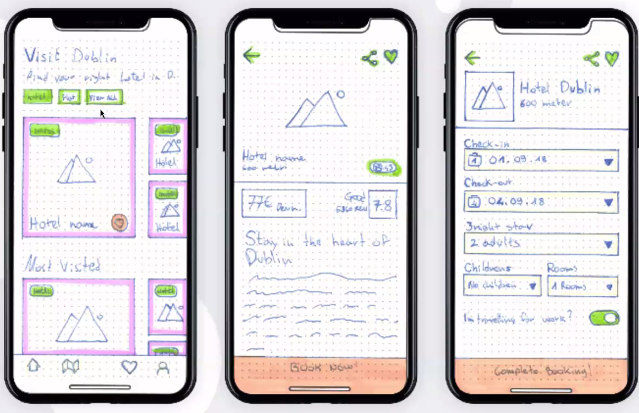 Visit Dublin
Find your right hotel in D.
Hotel
Map
View All
Hotel name
Hotel
Hotel
Most Visited
Hotel name
600 meter
77€
Good
7.8
Stay in the heart of
Dublin
BOOK NOW!
Hotel Dublin
600 meter
Check-in
01.09.18
Check-out
04.09.18
3 night stay
2 adults
Childrens
Rooms
No children
1 Rooms
I'm travelling for work?
Complete Booking!